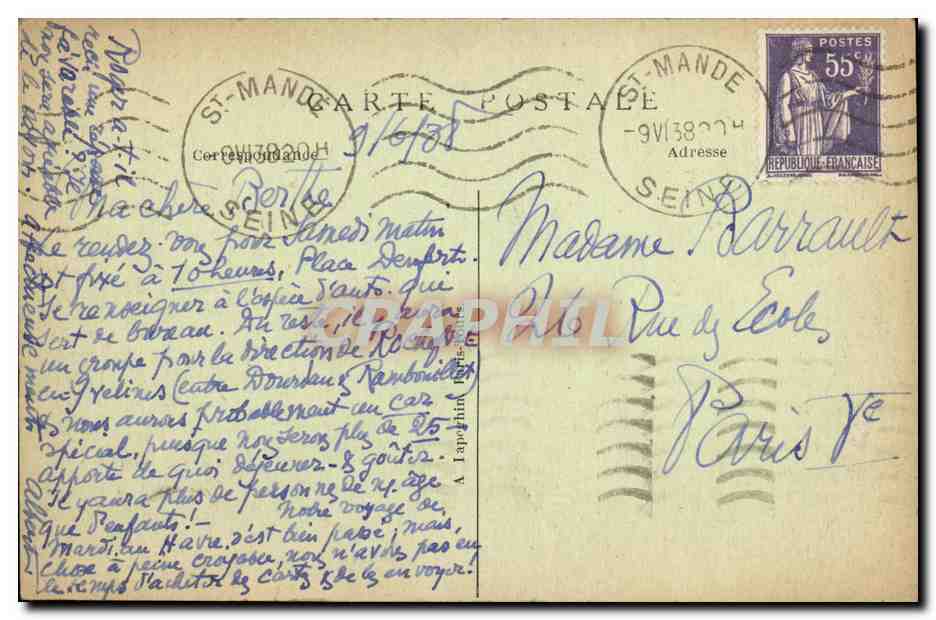 CARTE POSTALE
Correspondance
Adresse
ST-MANDÉ
-9 VI 38 20H
SEINE
ST-MANDÉ
-9 VI 38 20H
SEINE
POSTES
55c
RÉPUBLIQUE-FRANÇAISE
9/6/38
Ma chère Berthe
Le rendez-vous pour Samedi matin
est fixé à 10 heures, Place Denfert.
Se renseigner à l'espèce d'auto qui
sert de bureau. Du reste, il y aura
un groupe pour la direction de Rochefort
en Yvelines (entre Dourdan & Rambouillet)
& nous aurons probablement un car
spécial, puisque nous serons plus de 25-
apporte de quoi déjeuner & goûter.
Il y aura plus de personnes de n/ âge
que d'enfants! - Notre voyage de
Mardi, au Havre s'est bien passé; mais,
chose à peine croyable, nous n'avons pas eu
le temps d'acheter des cartes & de les envoyer!
Roger a-t-il
reçu une réponse
favorable?
de le savoir. affectueusement
Madame Barrault
26 Rue des Ecoles
Paris Ve
A Lapeghin Paris
CPAPHIL